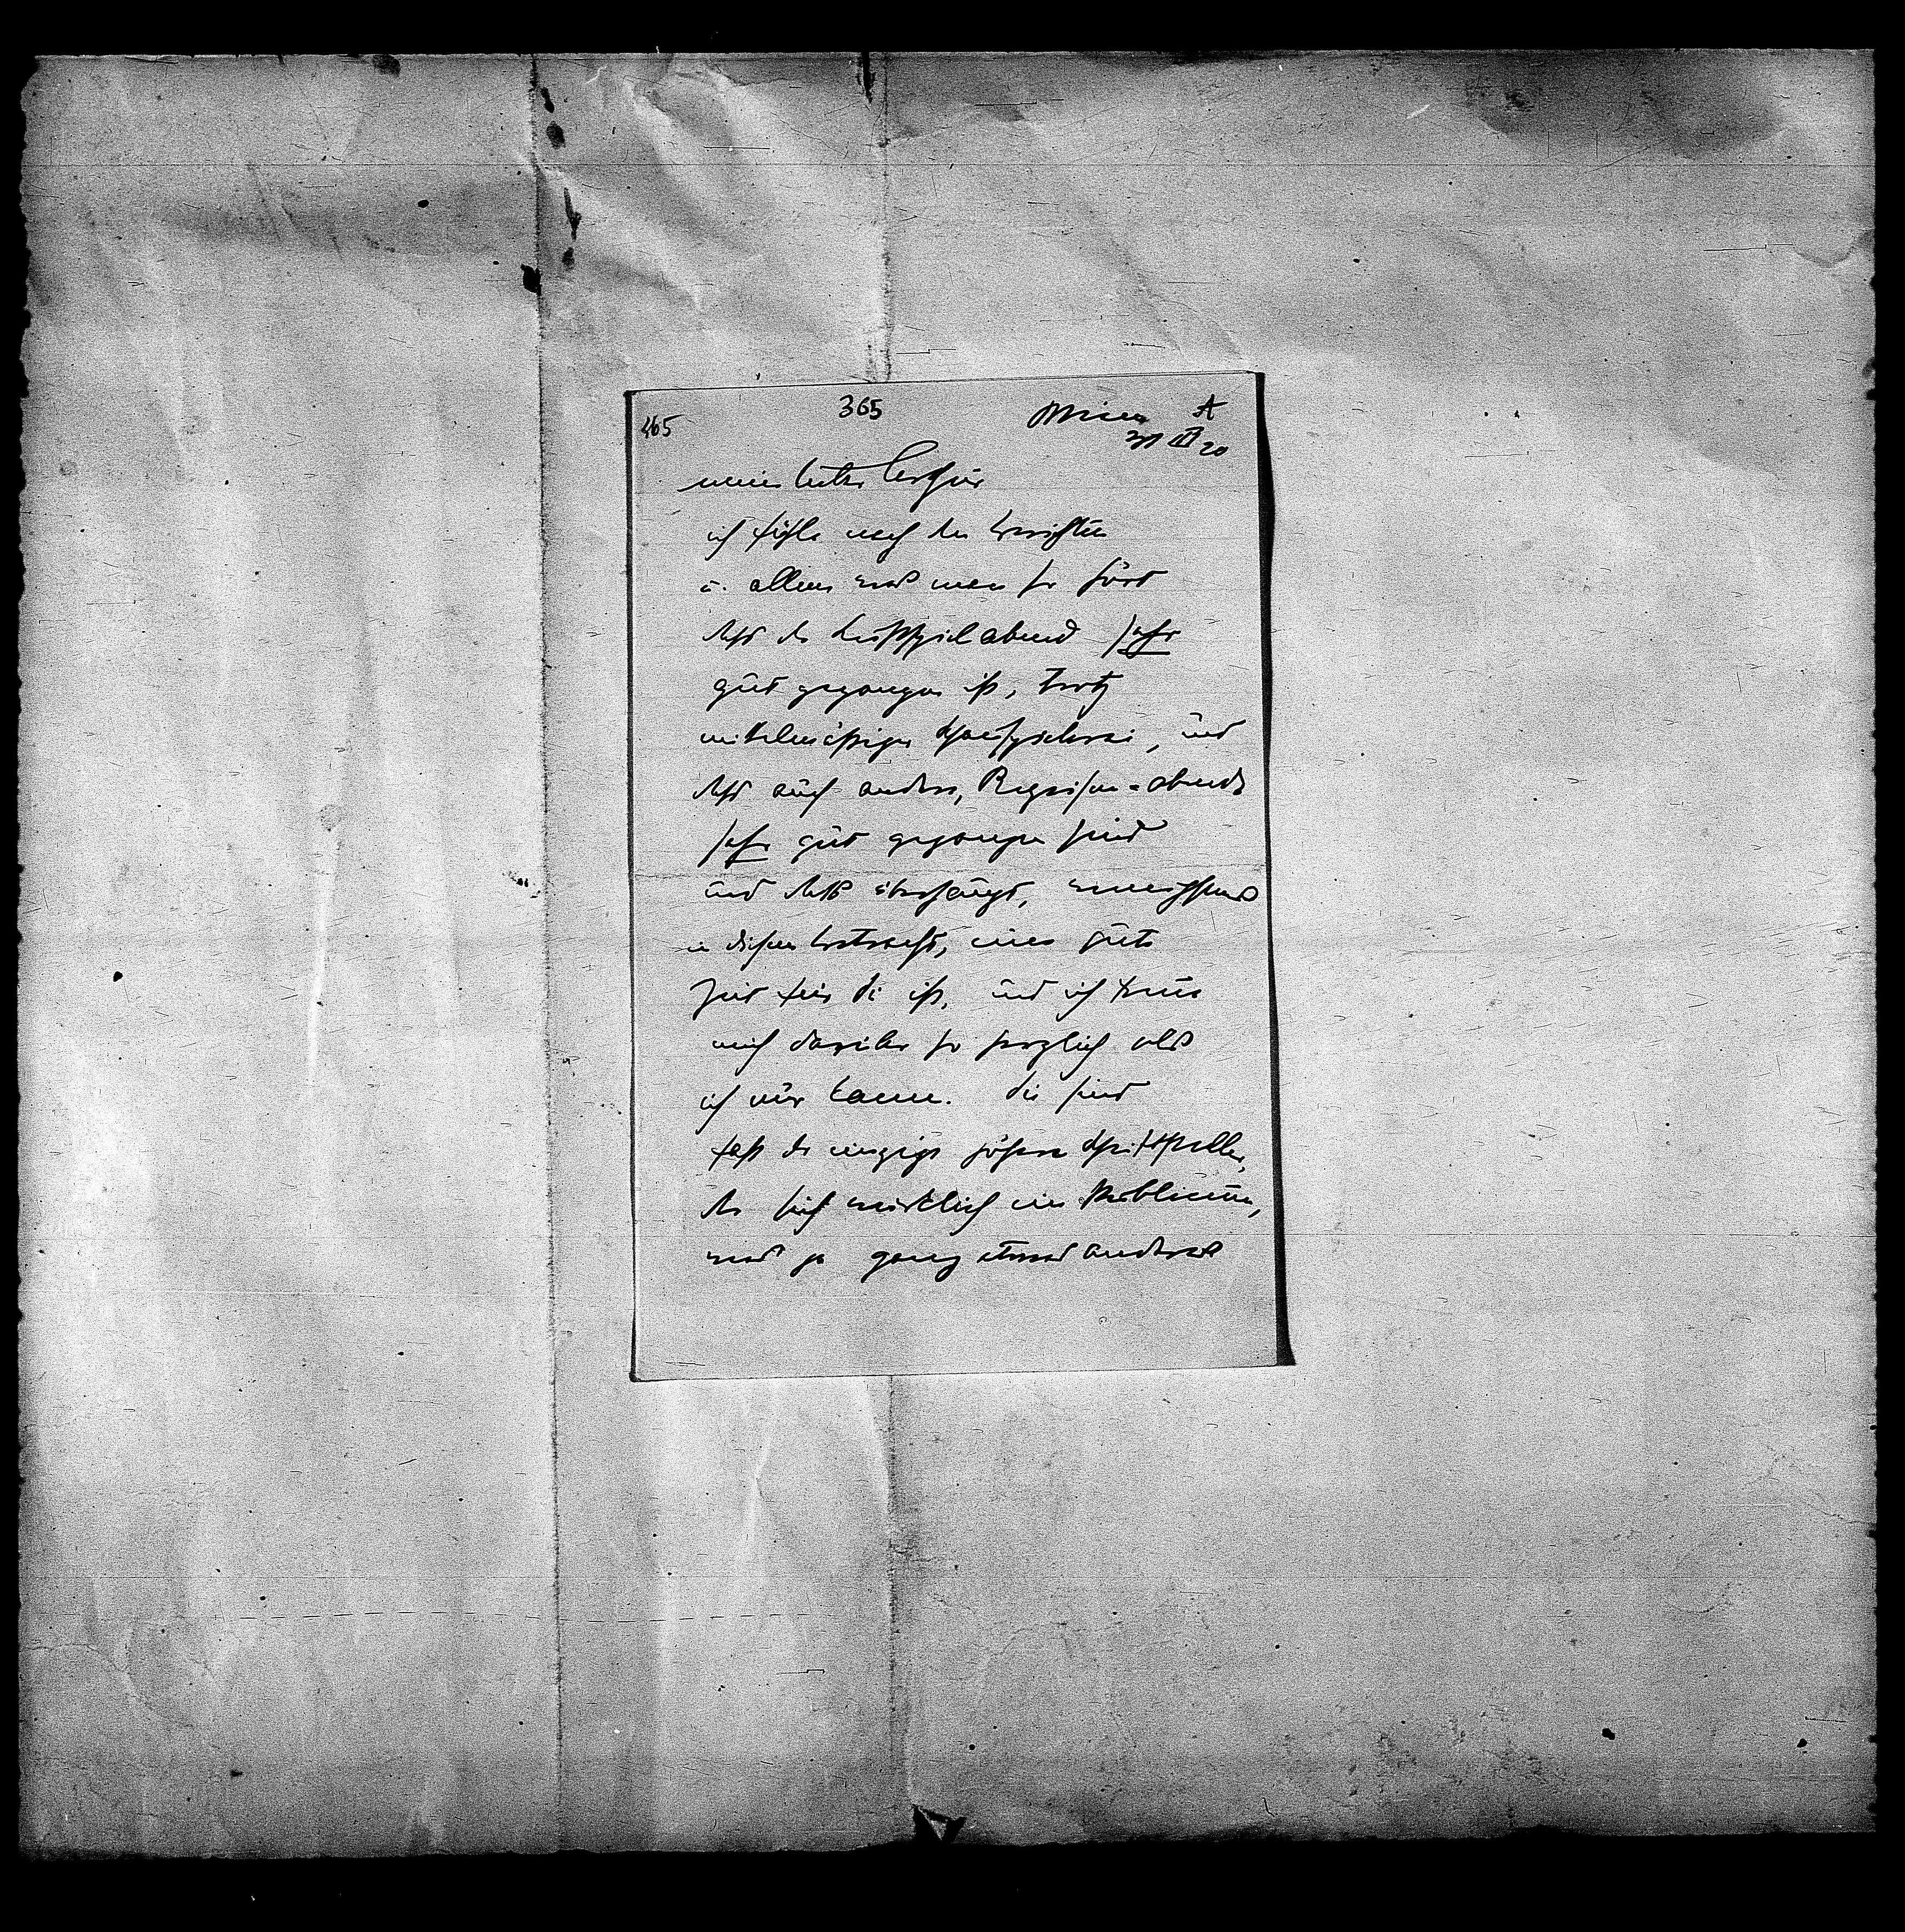 365
465
Wien A
31 III 20
mein lieber Arthur
ich fühle nach den Berichten
u. allem was man so hört
dass der Lustspielabend sehr
gut gegangen ist, trotz
mittelmässiger Schauspielerei, und
dass auch andere, Reprisen-abende
sehr gut gegangen sind
und dass überhaupt,
in diesem Betracht, eine gute
Zeit für Sie ist, und ich freue
mich darüber so herzlich als
ich nur kann. Sie sind
fast der einzige höhere Schriftsteller,
der sich wirklich ein Publicum,
was ja ganz etwas anderes